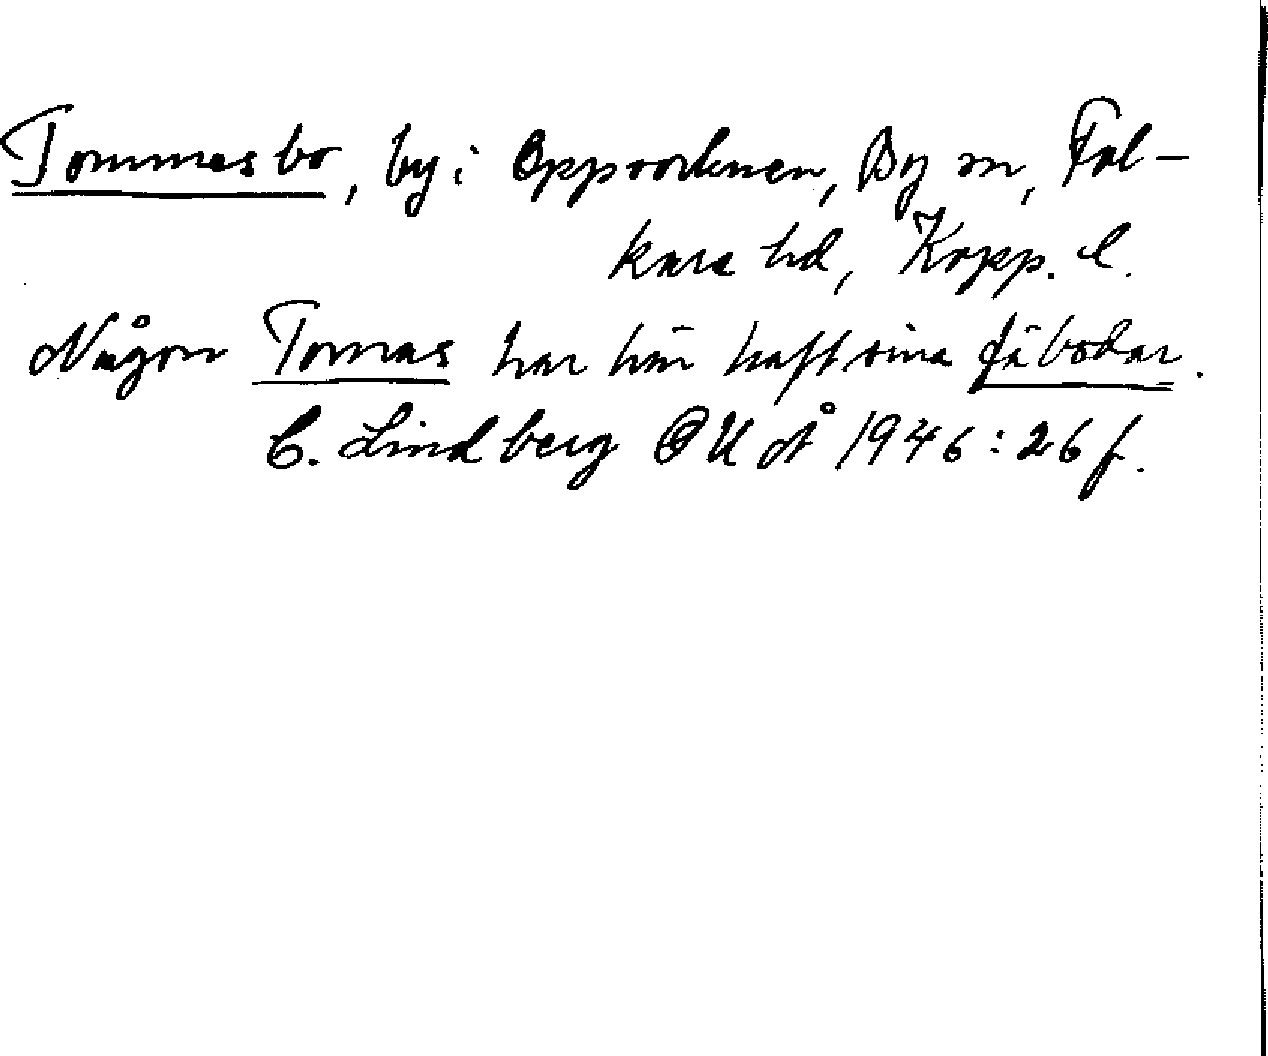 Tommesbo, by i Oppsocknen, By sn, Fol-
kare hd, Kopp. l.
Någon Tomas har här haft sina fäbodar.
C. Lindberg OUÅ 1946:26 f.